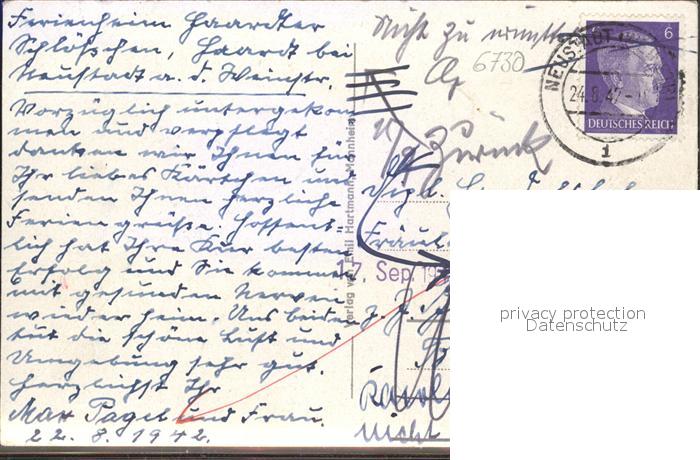 Ferienheim Haardter
Schlößchen, Haardt bei
Neustadt a. d. Weinstr.
Vorzüglich untergekom-
men und verpflegt
danken wir Ihnen für
Ihr liebes Kärtchen und
senden Ihnen herzliche
Feriengrüße. Hoffent-
lich hat Ihre Kur besten
Erfolg und Sie kommen
mit gesunden Nerven
wieder heim. Uns beiden
tut die schöne Luft und
Umgebung sehr gut.
Herzlichst Ihr
Max Pagel und Frau.
22. 8. 1942.
Verlag von Emil Hartmann, Mannheim
Nicht zu ermitteln
6730
Zurück
NEUSTADT
24.8.42
1
6
DEUTSCHES REICH
Fräul
17. Sep. 19
nicht
privacy protection
Datenschutz